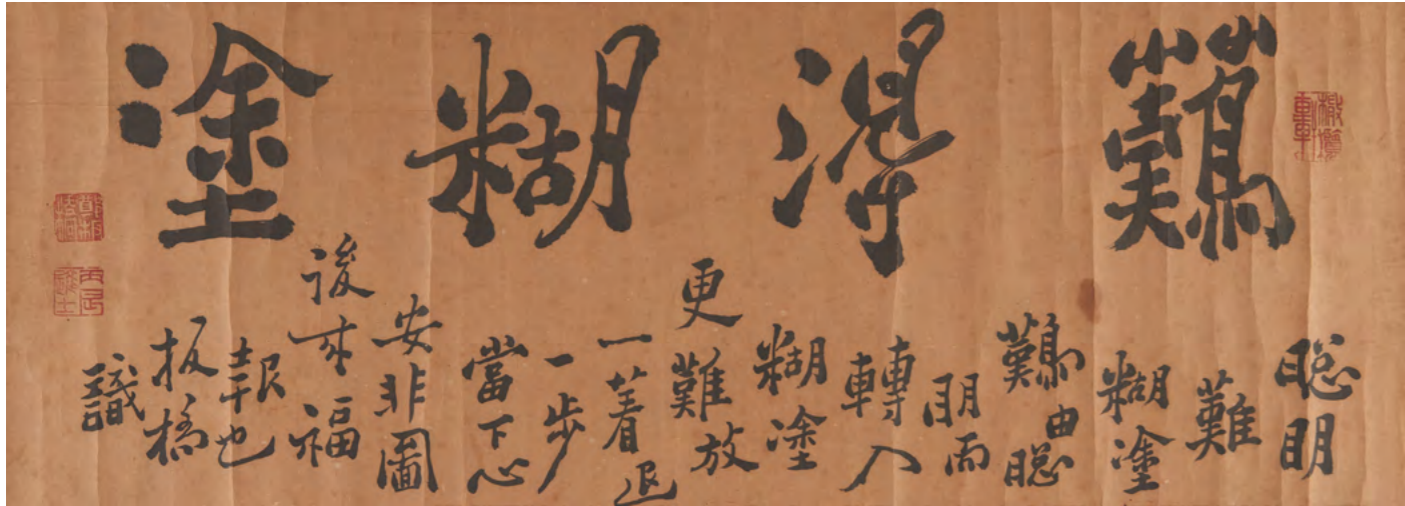 橄欖軒
難得糊塗
聰明
難
糊塗
難由聰
明而
轉入
糊塗
更難放
一着退
一步
當下心
安非圖
後来福
報也
板橋
識
丙辰進士